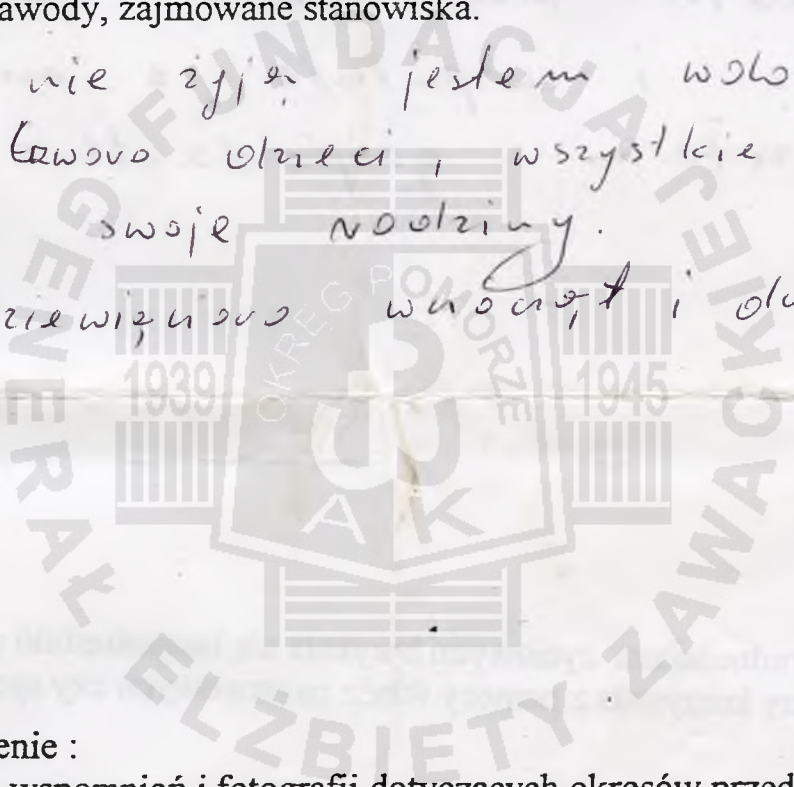 awody, zajmowane stanowiska.
nie żyje jestem wdo
czworo dzieci, wszystkie
swoje rodziny.
ziewięcioro wnocząt i
FUNDACJA GENERAŁ ELŻBIETY ZAWACKIEJ
OKRĘG POMORZE
1939 1945
AK
enie :
wspomnień i fotografii dotyczących okresów przed